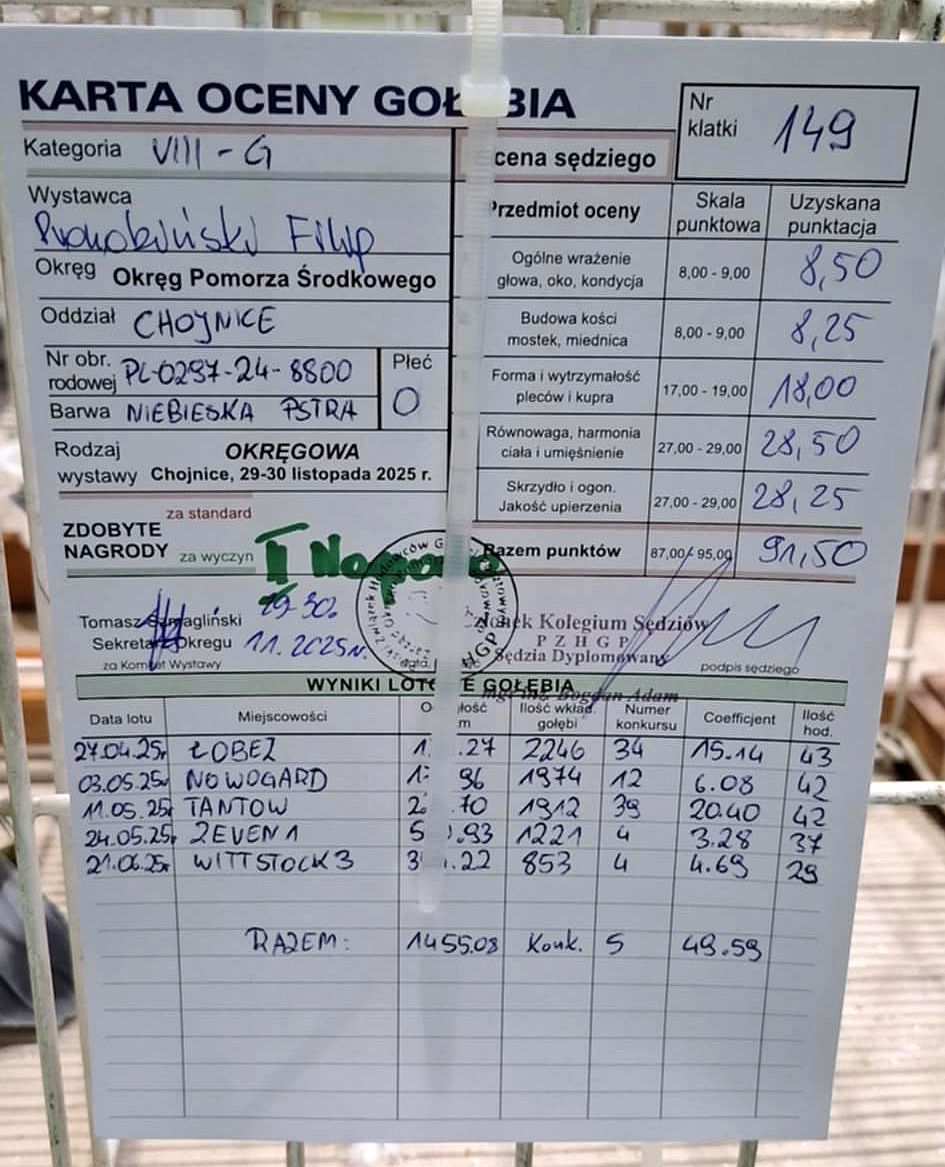 KARTA OCENY GOŁ BIA
Nr klatki 149
Kategoria VIII - G
cena sędziego
Wystawca
Filip
Okręg Okręg Pomorza Środkowego
Oddział CHOJNICE
Nr obr. rodowej PL-0297-24-8800
Płeć 0
Barwa NIEBIESKA PSTRA
Rodzaj wystawy OKRĘGOWA
Chojnice, 29-30 listopada 2025 r.
ZDOBYTE NAGRODY
za standard
za wyczyn
Przedmiot oceny Skala punktowa Uzyskana punktacja
Ogólne wrażenie głowa, oko, kondycja 8,00 - 9,00 8,50
Budowa kości mostek, miednica 8,00 - 9,00 8,25
Forma i wytrzymałość pleców i kupra 17,00 - 19,00 18,00
Równowaga, harmonia ciała i umięśnienie 27,00 - 29,00 28,50
Skrzydło i ogon. Jakość upierzenia 27,00 - 29,00 28,25
Razem punktów 87,00/ 95,00 91,50
Tomasz
Sekretarz Okręgu
za Komitet Wystawy
29-30.
11.2025r.
Kolegium Sędziów
PZHGP
Sędzia Dyplomowany
mgr inż. Bogdan Adam
podpis sędziego
WYNIKI LOT E GOŁĘBIA
Data lotu Miejscowości Ilość wkład. gołębi Numer konkursu Coefficjent Ilość hod.
27.04.25r ŁOBEZ .27 2246 34 15.14 43
03.05.25r NOWOGARD 96 1974 12 6.08 42
11.05.25r TANTOW .70 1912 39 20.40 42
24.05.25r ZEVEN 1 .93 1221 4 3.28 37
21.06.25r WITTSTOCK 3 .22 853 4 4.69 29
RAZEM: 1455.08 Konk. 5 49.59